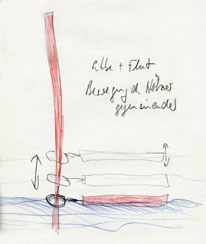 Ebbe + Flut
Bewegung d.
gegeneinander